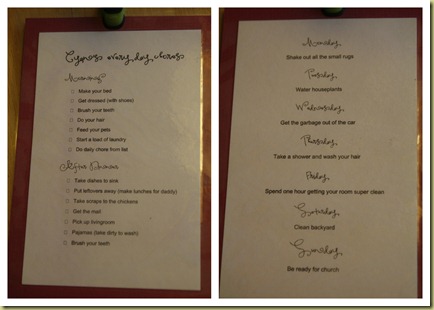 Cypress every day chores
Mornings
Make your bed
Get dressed (with shoes)
Brush your teeth
Do your hair
Feed your pets
Start a load of laundry
Do daily chore from list
After Dinner
Take dishes to sink
Put leftovers away (make lunches for daddy)
Take scraps to the chickens
Get the mail
Pick up livingroom
Pajamas (take dirty to wash)
Brush your teeth
Monday
Shake out all the small rugs
Tuesday
Water houseplants
Wednesday
Get the garbage out of the car
Thursday
Take a shower and wash your hair
Friday
Spend one hour getting your room super clean
Saturday
Clean backyard
Sunday
Be ready for church